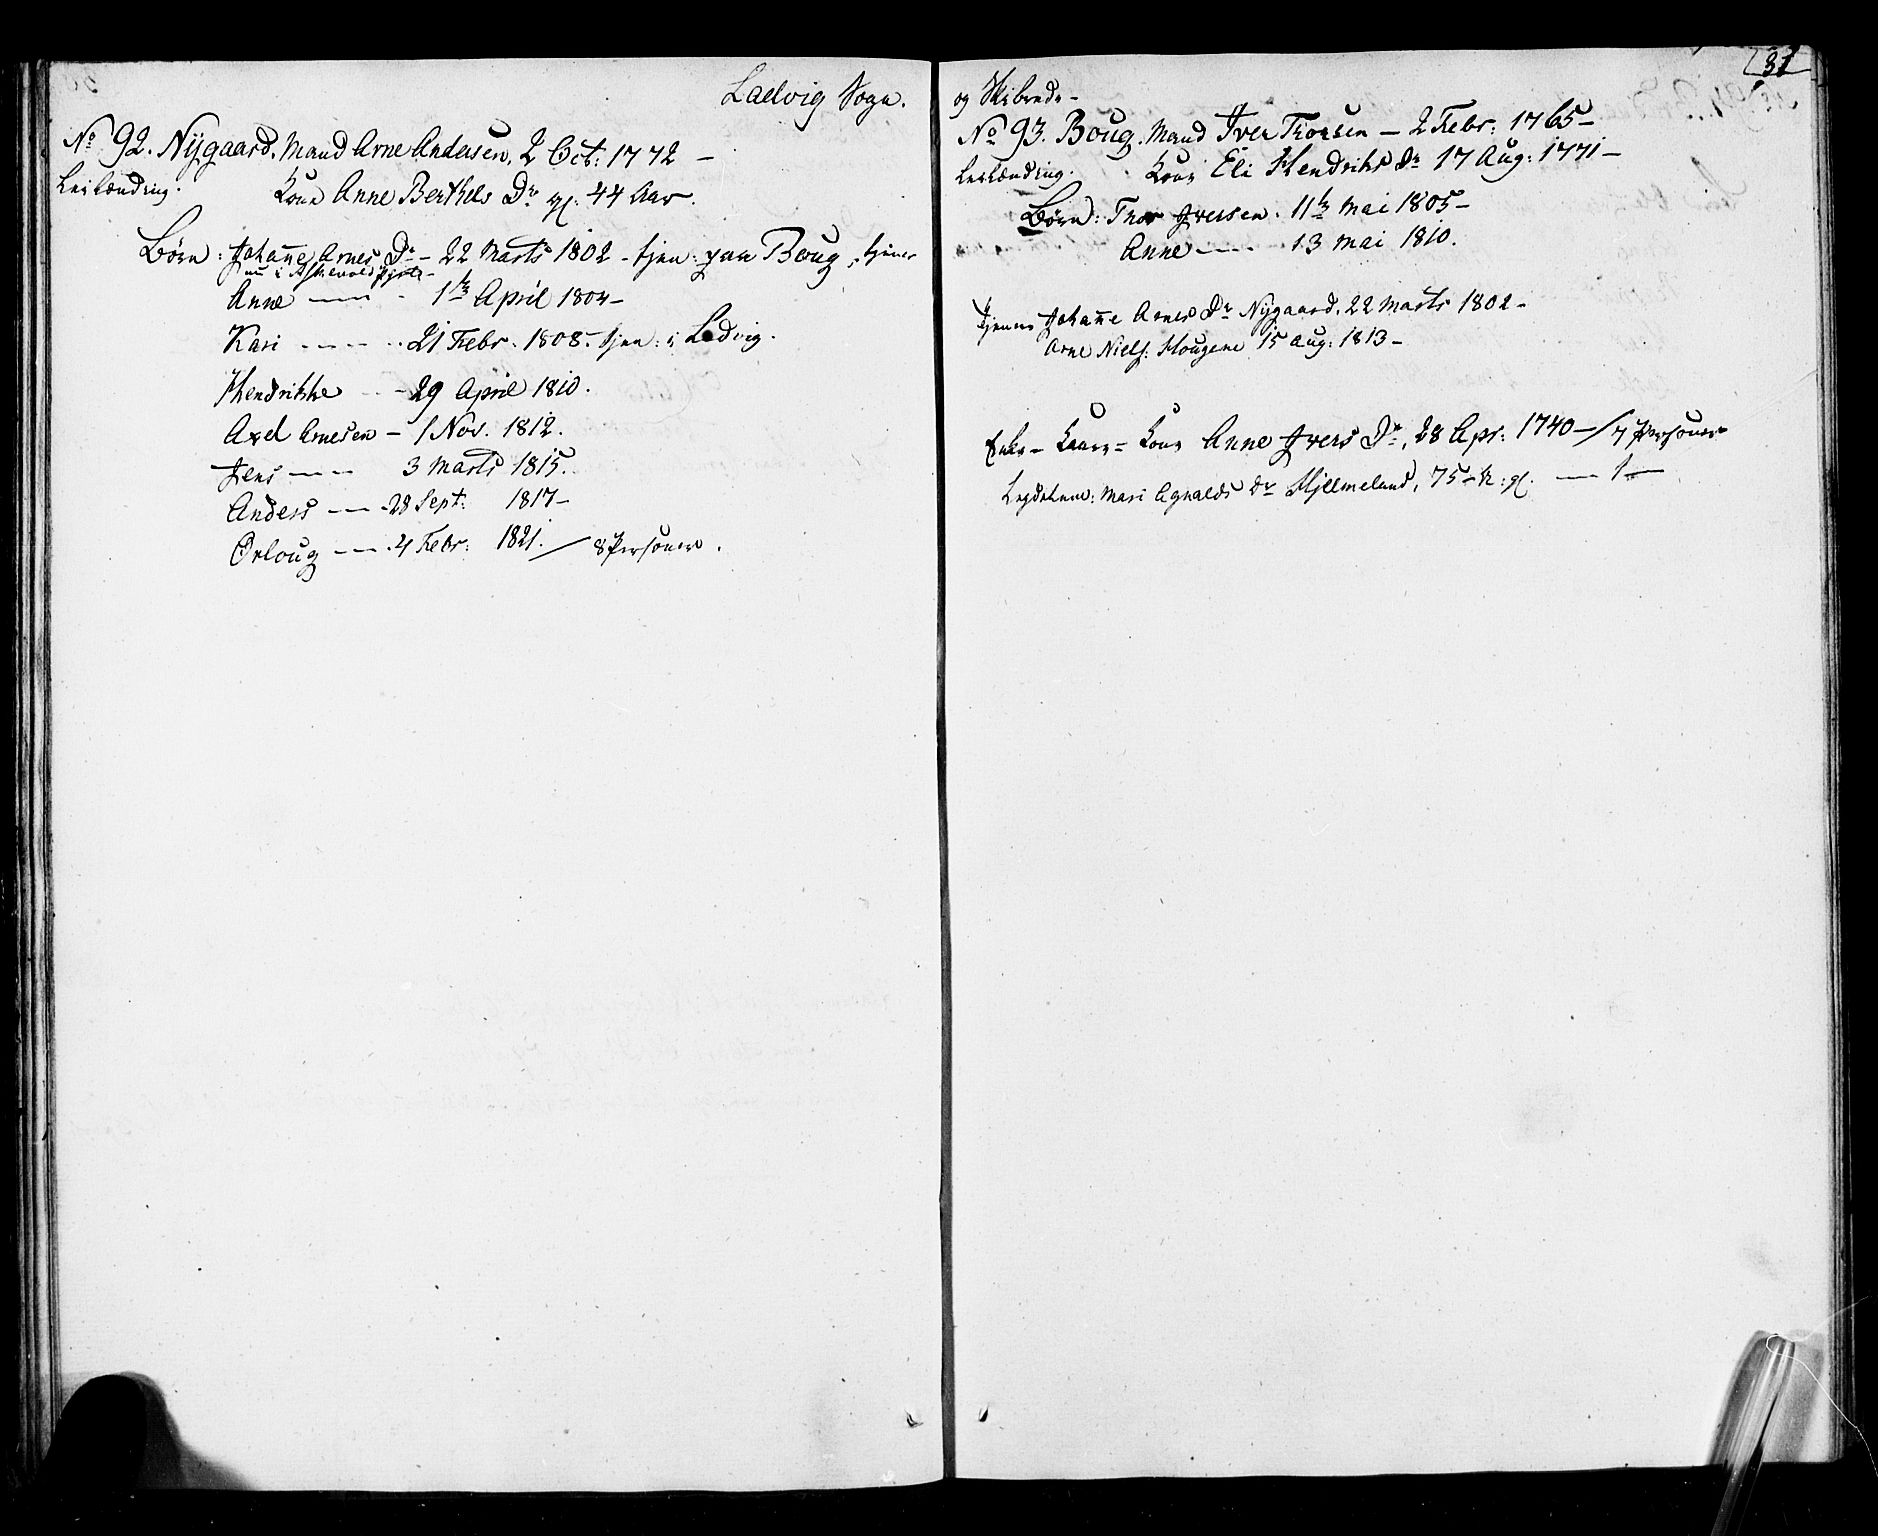 Ladvig Sogn.
No 92. Nÿgaard. Mand Arne Andersen, 2 Oct: 1772 –
Leilænding. Kone Anne Berthels Dr gl: 44 Aar.
Børn: Johanne Arnes Dr – 22 Marts 1802 – tjen: paa Boug, tjener
nu i Askevold
Anne — 1te April 1804 –
Kari — 21 Febr. 1808 – tjen: i Ladvig.
Hendrikke – 29 April 1810.
Axel Arnesen – 1 Nov. 1812.
Jens — 3 Marts 1815.
Anders — 28 Sept: 1817 –
Ørloug — 4 Febr: 1821. / 8 Personer.
37
og Skibrede –
No 93. Boug. Mand Iver Thorsen – 2 Febr: 1765 –
Leilænding. Kone Eli Hendriks Dr 17 Aug: 1771 –
Børn: Thor Iversen. 11te Mai 1805 –
Anne — 13 Mai 1810.
Tjener Johanne Arnes Dr Nygaard. 22 Marts 1802 –
Arne Niels: Hougene 15 Aug: 1813 –
Enke – Kaar – Kone Anne Ivers Dr, 28 Apr: 1740 – / 7 Personer
Legdelem: Mari Dr Hjellmeland, 75 gl. — 1 —